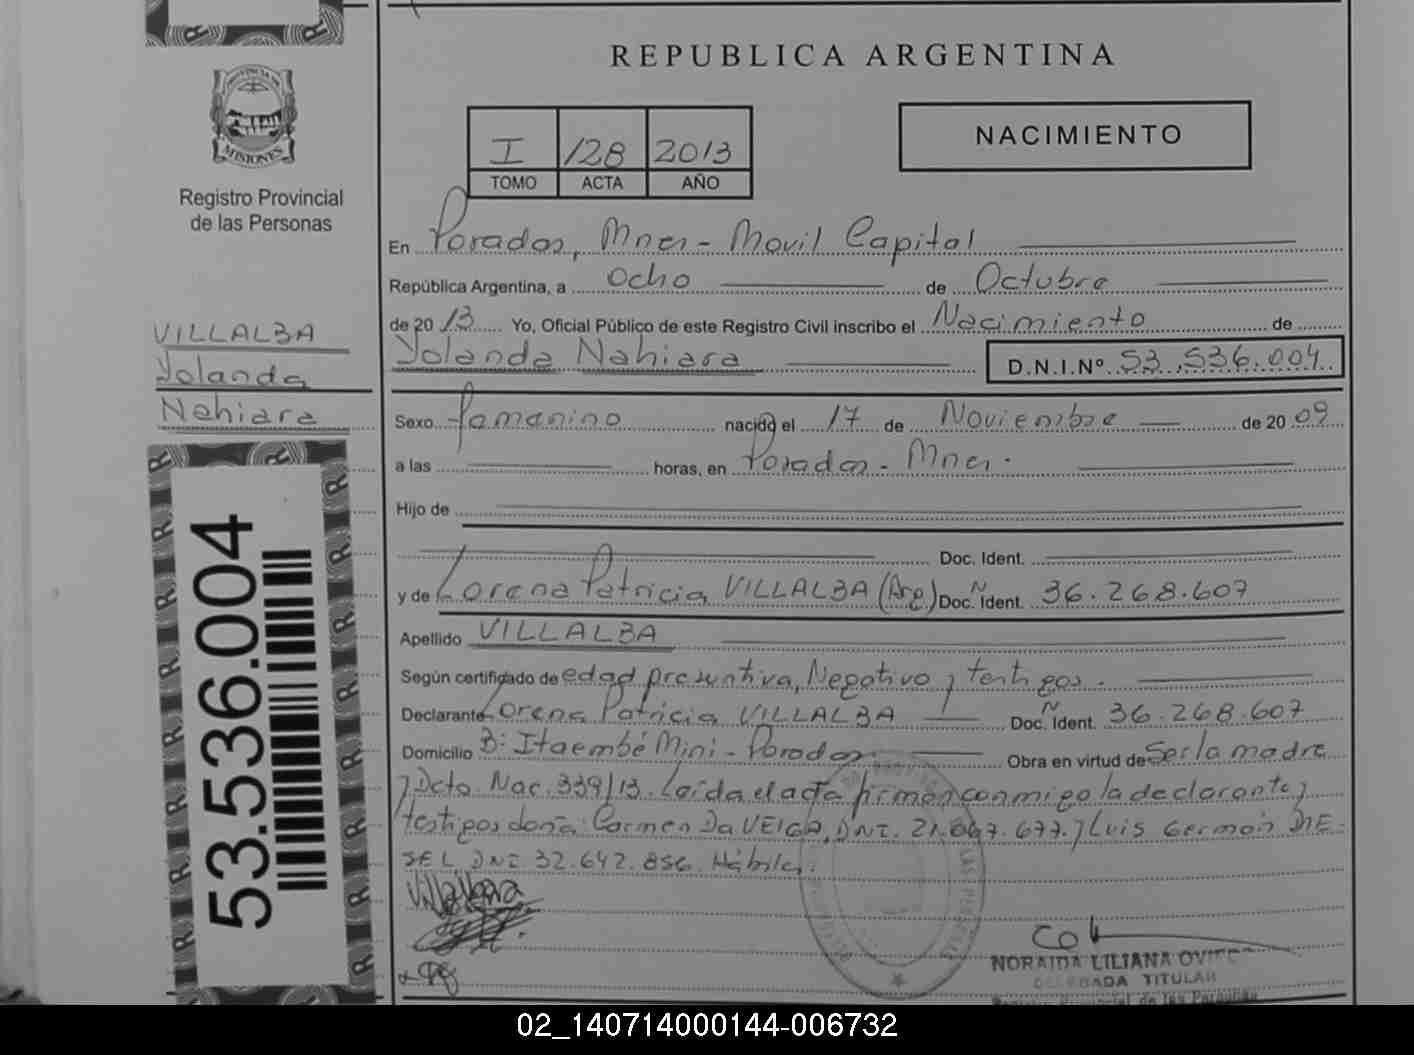 REPUBLICA ARGENTINA
PROVINCIA DE
MISIONES
Registro Provincial
de las Personas
I 128 2013
TOMO ACTA AÑO
NACIMIENTO
En Posadas, Mnes - Movil Capital
República Argentina, a Ocho de Octubre
de 20 13 Yo, Oficial Público de este Registro Civil inscribo el Nacimiento de
Yolanda Nahiara D.N.I.Nº 53.536.004
VILLALBA
Yolanda
Nahiara
Sexo Femenino nacido el 17 de Noviembre de 20 09
a las horas, en Posadas - Mnes.
Hijo de
Doc. Ident.
y de Lorena Patricia VILLALBA (Arg) Doc. Ident. 36.268.607
Apellido VILLALBA
Según certificado de edad presuntiva, Negativo y testigos.
Declarante Lorena Patricia VILLALBA Doc. Ident. 36.268.607
Domicilio B: Itaembé Mini - Posadas Obra en virtud de ser la madre
y Dcto. Nac. 339/13. Leída el acta firman conmigo la declarante y
testigos doña: Carmen Da VEIGA, DNI. 21. 677. y Luis German DIE-
SEL DNI 32.642.856. Hábiles.
Villalba
53.536.004
NORAIDA LILIANA
DELEGADA TITULAR
Registro Provincial de las Personas
02_140714000144-006732